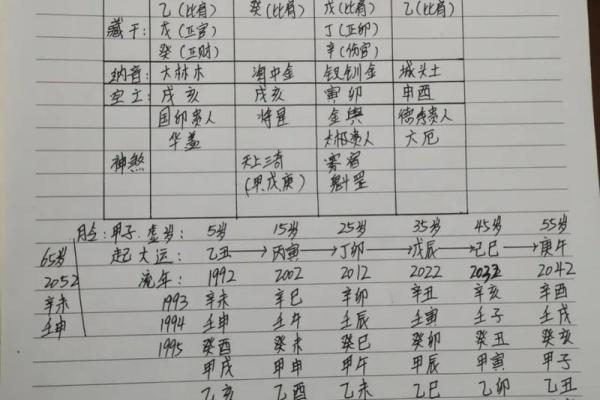 乙(比肩) 癸(比肩) 戊(比肩) 乙(比肩)
藏干: 戊(正官) 丁(正卯)
癸(正财) 辛(伤官)
纳音: 大林木 海中金 钗钏金 城头土
空亡: 戌亥 戌亥 寅卯 申酉
国印贵人 将星 金舆 德秀贵人
华盖 太极贵人 大厄
神煞 天上三奇 寡宿
(甲、戊、庚) 魁罡
月令: 甲子. 虚岁: 5岁 15岁 25岁 35岁 45岁 55岁
65岁 起大运: 乙丑→丙寅→丁卯→戊辰→己巳→庚午
2052 流年: 1992 2002 2012 2022 2032 2042
辛未 1993 辛未 辛巳 辛卯 辛丑 辛亥 辛酉
壬申 1994 壬申 壬午 壬辰 壬寅 壬子 壬戌
1995 癸酉 癸未 癸巳 癸卯 癸丑 癸亥
甲戌 甲申 甲午 甲辰 甲寅 甲子
乙亥 乙酉 乙未 乙巳 乙卯 乙丑